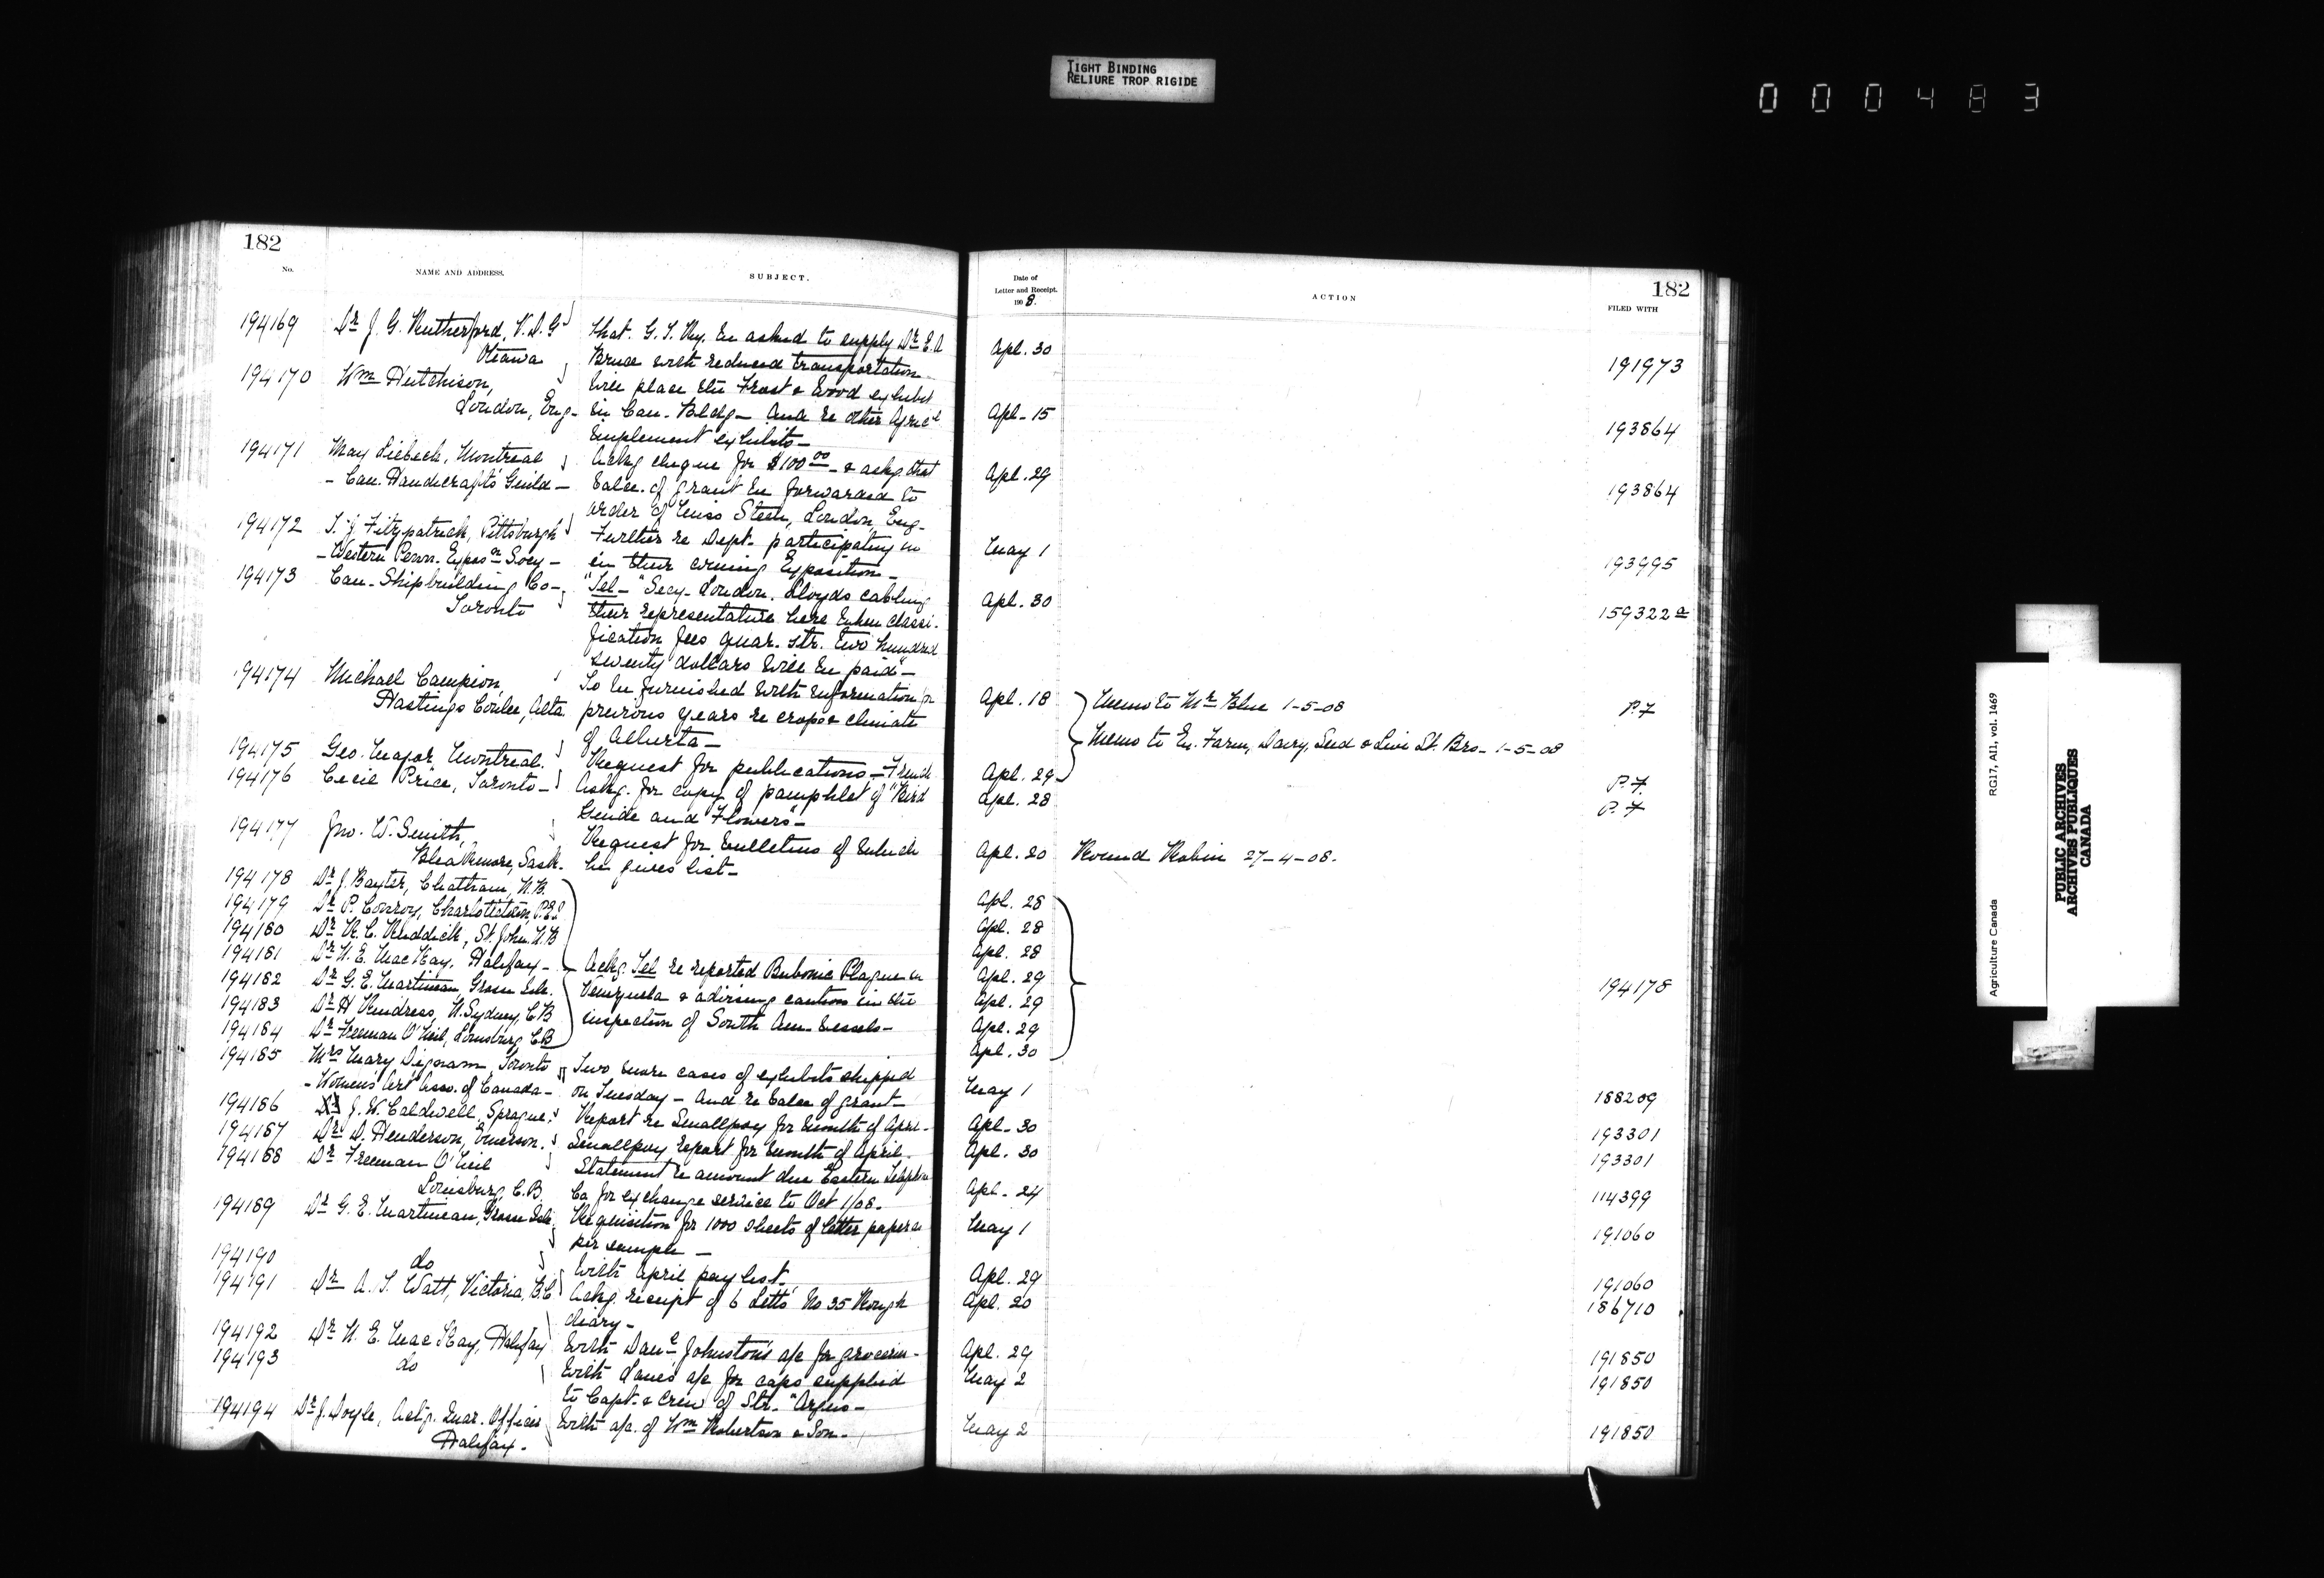 TIGHT BINDING
RELIURE TROP RIGIDE
000483
182
No.
NAME AND ADDRESS.
SUBJECT.
194169 Dr J. G. Rutherford, V.D.G. That G. T. Ry. be asked to supply Dr E. A
Ottawa Bruce with reduced transportation
194170 Wm Hutchison, Will place the Frost & Wood exhibit
London, Eng- in Can. Bldg- And re other Agricl
implement exhibits-
194171 May Liebeck, Montreal Ackg cheque for $100.00 - & askg that
- Can. Handicrafts Guild - balce. of grant be forwarded to
order of Miss Steen, London, Eng-
194172 T. J. Fitzpatrick, Pittsburgh Further re Dept. participating in
- Western Penn. Exposn Socy - in their coming Exposition-
194173 Can. Shipbuilding Co- "Tel-" Secy- London. Lloyds cabling
Toronto their representative here when classi-
fication fees quar. str. two hundred
seventy dollars will be paid"-
194174 Michael Campion, To be furnished with information for
Hastings Coulee, Alta previous years re crops & climate
of Alberta-
194175 Geo. Major, Montreal. Request for publications - French
194176 Cecil Price, Toronto- Askg. for copy of pamphlet of "Bird
Guide and Flowers"-
194177 Jno. W. Smith, Request for bulletins of which
Sask. he gives list-
194178 Dr J. Baxter, Chatham, N.B.
194179 Dr P. Conroy, Charlottetown, P.E.I.
194180 Dr R. C. Ruddick, St. John N.B
194181 Dr N. E. MacKay, Halifax- Ackg. Tel re reported Bubonic Plague in
194182 Dr G. E. Martineau Grosse Isle. Venezuela & advising caution in the
194183 Dr H Rindress, N. Sydney, C.B inspection of South Am- Vessels-
194184 Dr Freeman O'Neil, Louisburg C.B
194185 Mrs Mary Dignam Toronto Two more cases of exhibits shipped
- Women's Art Asso. of Canada- on Tuesday - And re balce of grant-
194186 J. W. Caldwell, Sprague. Report re Smallpox for month of April-
194187 Dr D. Henderson, Emerson. Smallpox report for month of April.
194188 Dr Freeman O'Neil Statement re amount due Eastern Telephone
Louisburg, C.B. Co for exchange service to Oct 1/08.
194189 Dr G. E. Martineau, Grosse Isle Requisition for 1000 sheets of letter paper as
per sample -
194190 do With April pay list.
194191 Dr A. T. Watt, Victoria, B.C Ackg. receipt of 6 Letts' No 35 Rough
diary-
194192 Dr N. E. MacKay, Halifax With Danl Johnston's a/c for groceries-
194193 do With Lane's a/c for caps supplied
to Capt. & Crew of Str. "Argus-
194194 Dr J. Doyle, Actg. Quar. Officer With a/c. of Wm Robertson & Son-
Halifax-
Date of
Letter and Receipt.
1908.
ACTION
182
FILED WITH
Apl. 30 191973
Apl- 15 193864
Apl. 29 193864
May 1 193995
Apl. 30 159322 a
Apl. 18 Memo to Mr Blue 1-5-08 P.7
Memo to Ex. Farm, Dairy, Seed & Live St. Brs- 1-5-08
Apl. 29 P.7
Apl. 28 P.7
Apl. 20 Round Robin 27-4-08.
Apl. 28
Apl. 28
Apl. 28
Apl. 29 194178
Apl. 29
Apl. 29
Apl. 30
May 1 188209
Apl- 30 193301
Apl. 30 193301
Apl- 24 114399
May 1 191060
Apl. 29 191060
Apl. 20 186710
Apl. 29 191850
May 2 191850
May 2 191850
Agriculture Canada RG17, AII, vol. 1469
PUBLIC ARCHIVES
ARCHIVES PUBLIQUES
CANADA